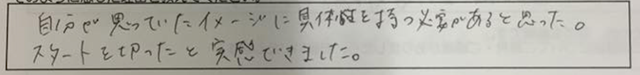 自分が思っていたイメージに具体性を持つ必要があると思った。
スタートを切ったと実感できました。